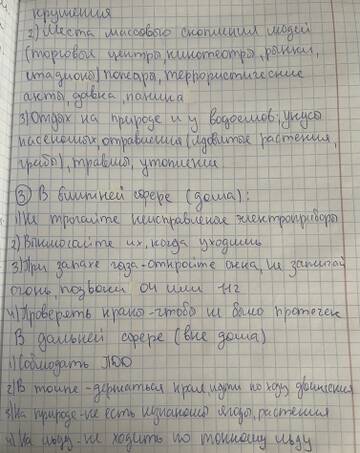 крушения
2) Места массового скопления людей
(торговые центры, кинотеатры, рынки,
стадионы) пожары, террористические
акты, давка, паника
3) Отдых на природе и у водоемов; укусы
насекомых, отравления (ядовитые растения,
грибы), травмы, утопления
③ В ближней сфере (дома):
1) Не трогайте неисправные электроприборы
2) Выключайте их, когда уходишь
3) При запахе газа - откройте окна, не зажигай
огонь, позвони 04 или 112
4) Проверять краны - чтобы не было протечек
В дальней сфере (вне дома)
1) Соблюдать ПДД
2) В толпе - держаться края, идти по ходу движения
3) На природе - не есть незнакомые ягоды, растения
4) На льду - не ходить по тонкому льду